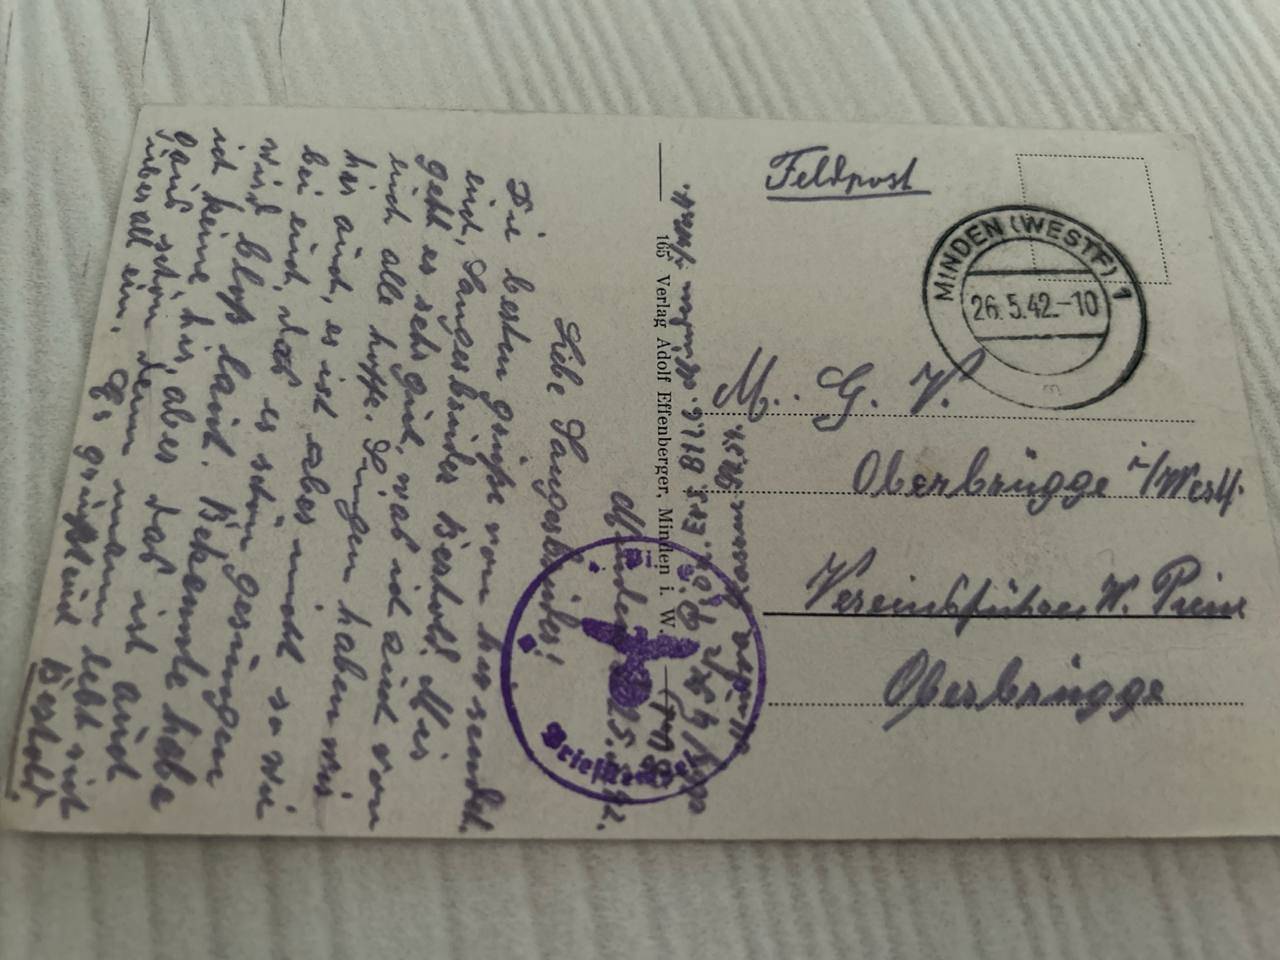 Feldpost
MINDEN (WESTF) 1
26.5.42.-10
M. G. V.
Oberbrügge i/Westf.
Vereinsführer W.
Oberbrügge
165 Verlag Adolf Effenberger, Minden i. W.
Briefstempel
Minden 25.
Liebe Sangesbrüder!
Die besten Grüße von hier sendet
euch, Sangesbruder Bertold. Mir
geht es sehr gut, was ich auch von
euch alle hoffe. Singen haben wir
hier auch, es ist aber nicht so wie
bei euch, daß es schön gesungen
wird bloß laut. Bekannte habe
ich keine hier, aber das ist auch
ganz schön denn man lebt sich
überall ein. Es grüßt euch Bertold.